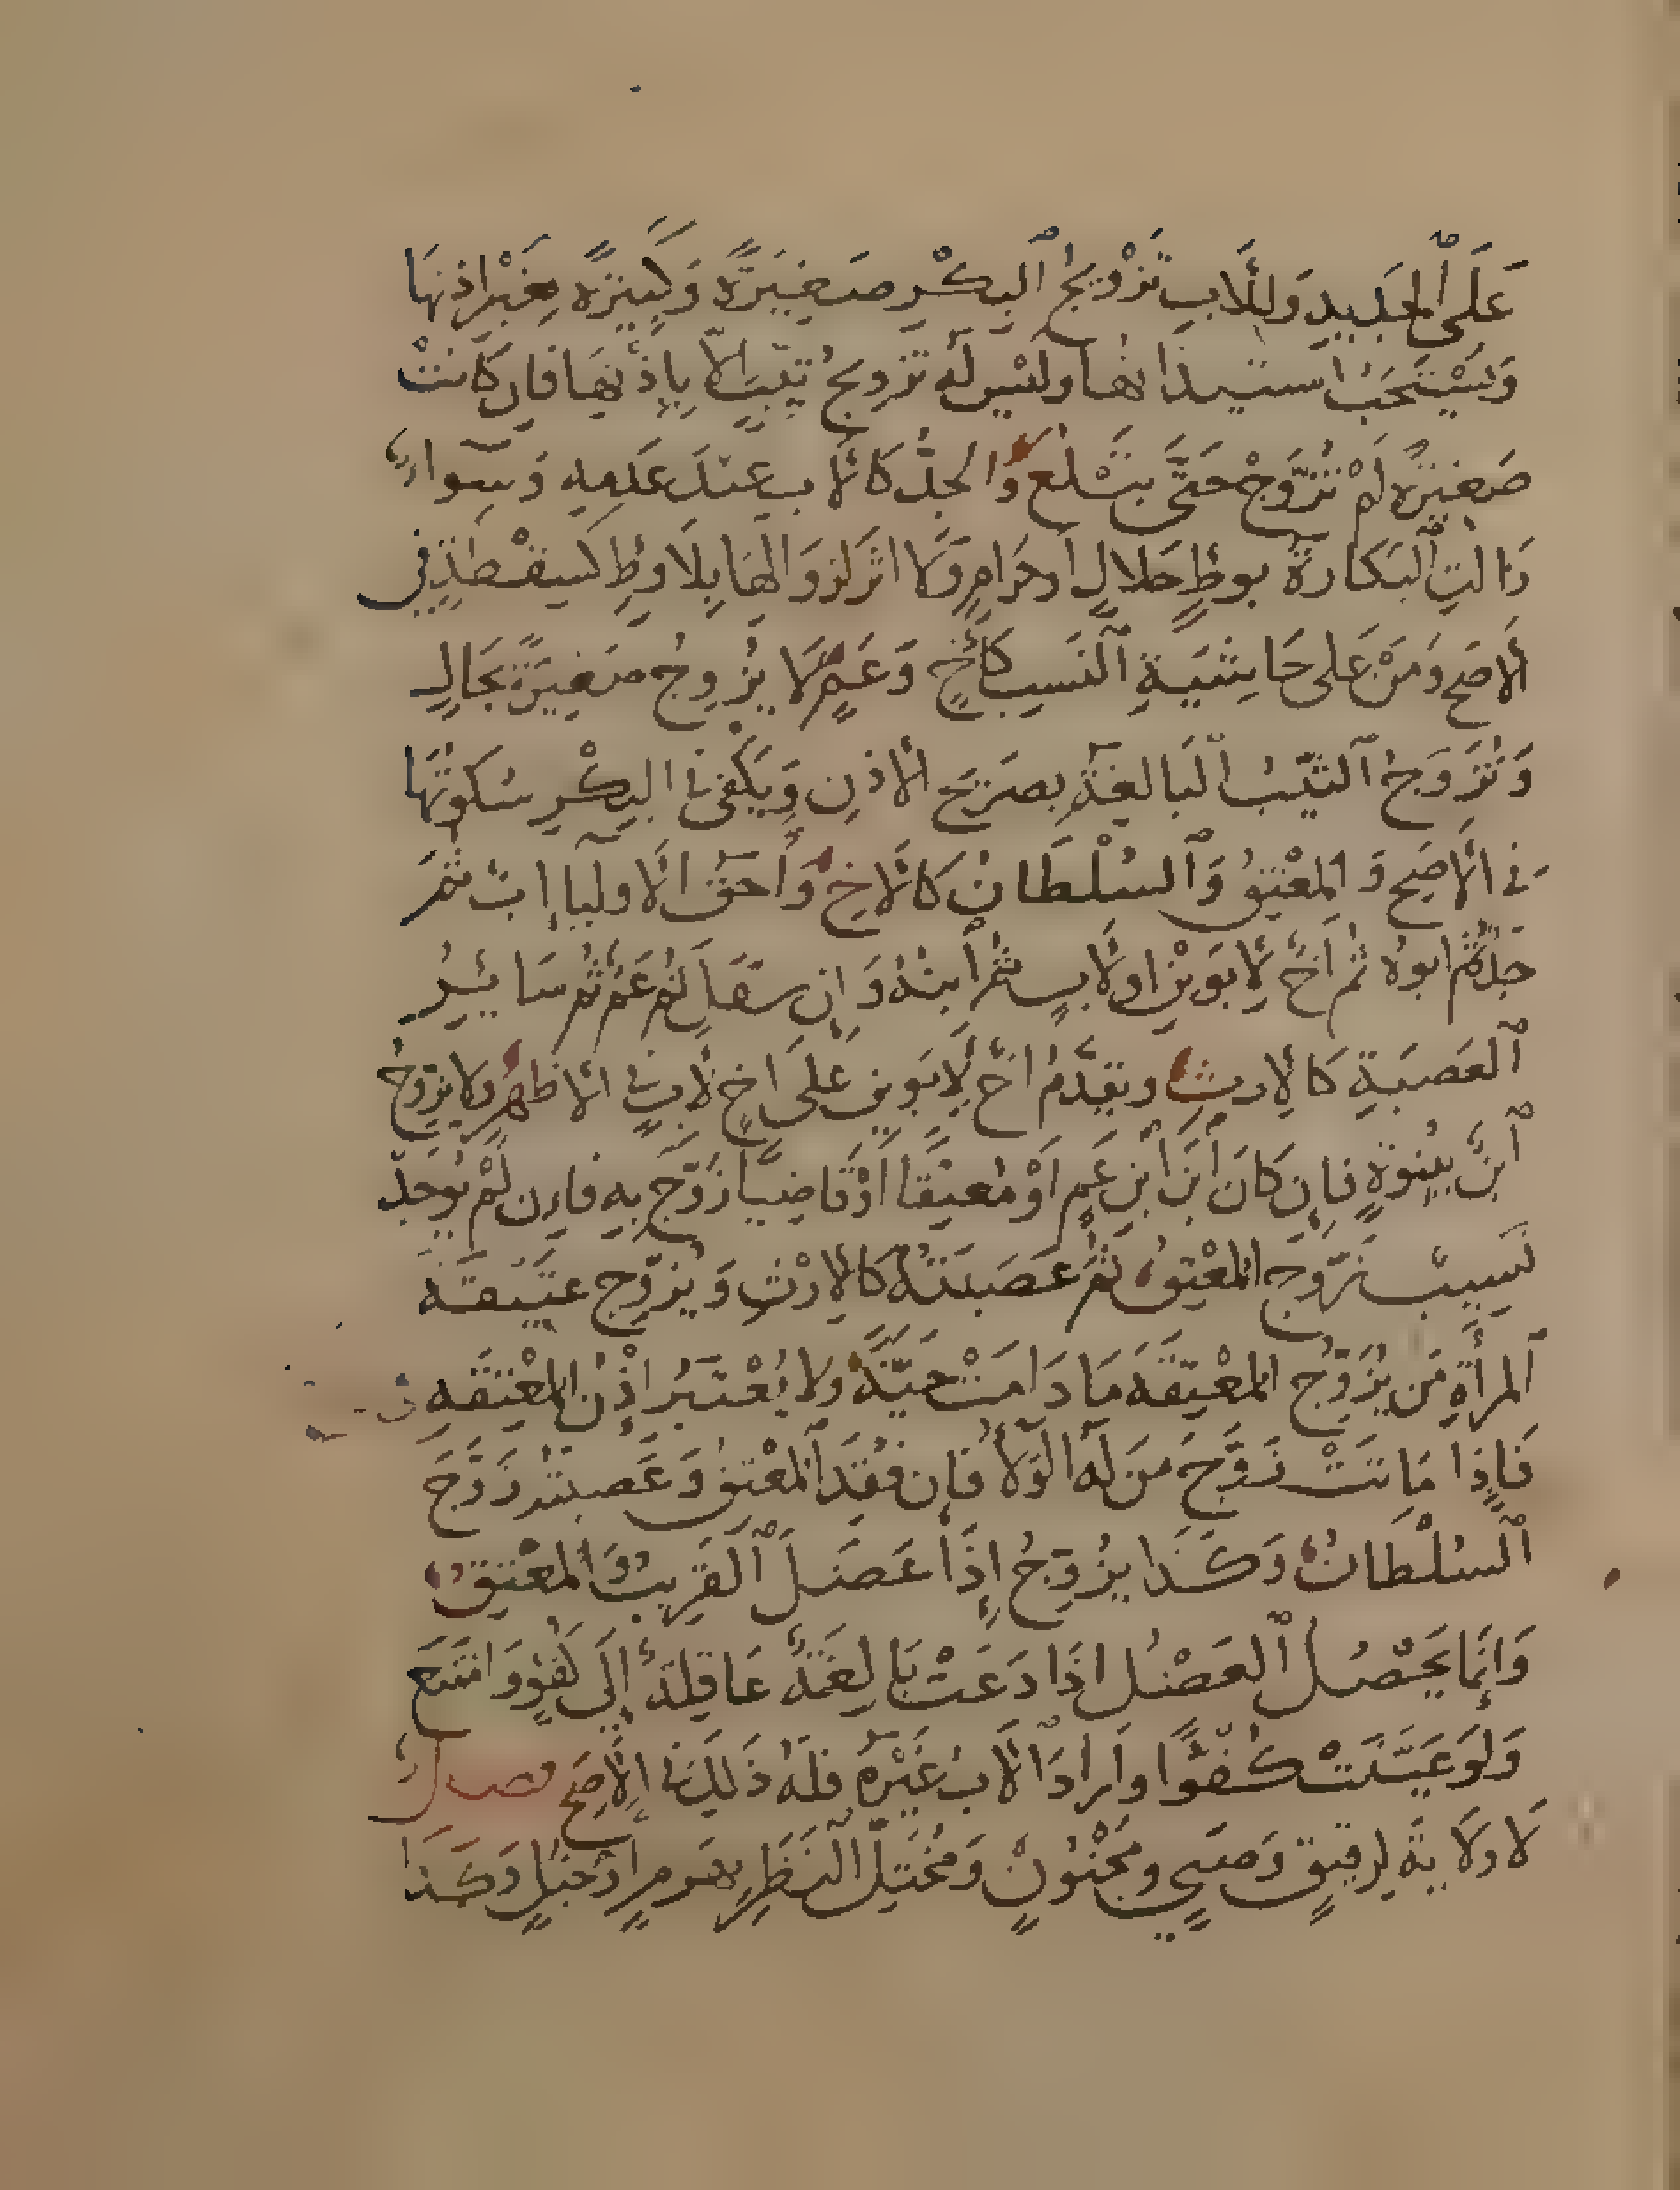 عَلَى ٱلْجَدِيدِ وَلِلْأَبِ تَزْوِيجُ ٱلْبِكْرِ صَغِيرَةً وَكَبِيرَةً بِغَيْرِ إِذْنِهَا
وَيُسْتَحَبُّ اسْتِيذَانُهَا وَلَيْسَ لَهُ تَزْوِيجُ ثَيِّبٍ إِلَّا بِإِذْنِهَا فَإِن كَانَتْ
صَغِيرَةً لَمْ تُزَوَّجْ حَتَّى تَبْلُغَ وَالْجَدُّ كَالْأَبِ عِنْدَ عَدَمِهِ وَسَوَاءٌ
زَالَتِ ٱلْبَكَارَةُ بِوَطْءٍ حَلَالٍ أَوْ حَرَامٍ وَلَا أَثَرَ لِزَوَالِهَا بِلَا وَطْءٍ كَسَقْطَةٍ فِي
ٱلْأَصَحِّ وَمَنْ عَلَى حَاشِيَةِ ٱلنَّسَبِ كَأَخٍ وَعَمٍّ لَا يُزَوِّجُ صَغِيرَةً بِحَالٍ
وَتُزَوَّجُ ٱلثَّيِّبُ ٱلْبَالِغَةُ بِصَرِيحِ الْإِذْنِ وَيَكْفِي فِي الْبِكْرِ سُكُوتُهَا
فِي الْأَصَحِّ وَالْمُعْتِقُ وَٱلسُّلْطَانُ كَالْأَخِ وَأَحَقُّ الْأَوْلِيَاءِ أَبٌ ثُمَّ
جَدٌّ ثُمَّ أَبُوهُ ثُمَّ أَخٌ لِأَبَوَيْنِ أَوْ لِأَبٍ ثُمَّ ٱبْنُهُ وَإِن سَفَلَ ثُمَّ عَمٌّ ثُمَّ سَائِرُ
ٱلْعَصَبَةِ كَالْإِرْثِ وَيُقَدَّمُ أَخٌ لِأَبَوَيْنِ عَلَى أَخٍ لِأَبٍ فِي الْأَظْهَرِ وَلَا يُزَوِّجُ
ٱبْنٌ بِبُنُوَّةٍ فَإِن كَانَ ٱبْنَ ٱبْنِ عَمٍّ أَوْ مُعْتِقًا أَوْ قَاضِيًا زَوَّجَ بِهِ فَإِن لَمْ يُوجَدْ
نَسِيبٌ زَوَّجَ الْمُعْتِقُ ثُمَّ عَصَبَتُهُ كَالْإِرْثِ وَيُزَوِّجُ عَتِيقَةَ
ٱلْمَرْأَةِ مَن يُزَوِّجُ الْمُعْتِقَةَ مَا دَامَتْ حَيَّةً وَلَا يُعْتَبَرُ إِذْنُ الْمُعْتِقَةِ فِي
فَإِذَا مَاتَتْ زَوَّجَ مَن لَهُ الْوَلَاءُ فَإِن فُقِدَ ٱلْمُعْتِقُ وَعَصَبَتُهُ زَوَّجَ
ٱلسُّلْطَانُ وَكَذَا يُزَوِّجُ إِذَا عَضَلَ ٱلْقَرِيبُ وَالْمُعْتِقُ
وَإِنَّمَا يَحْصُلُ ٱلْعَضْلُ إِذَا دَعَتْ بَالِغَةٌ عَاقِلَةٌ إِلَى كُفْوٍ وَامْتَنَعَ
وَلَوْ عَيَّنَتْ كُفْؤًا وَأَرَادَ ٱلْأَبُ غَيْرَهُ فَلَهُ ذَلِكَ فِي الْأَصَحِّ فصل
لَا وِلَايَةَ لِرَقِيقٍ وَصَبِيٍّ وَمَجْنُونٍ وَمُخْتَلِّ ٱلنَّظَرِ بِهَرَمٍ أَوْ خَبَلٍ وَكَذَا